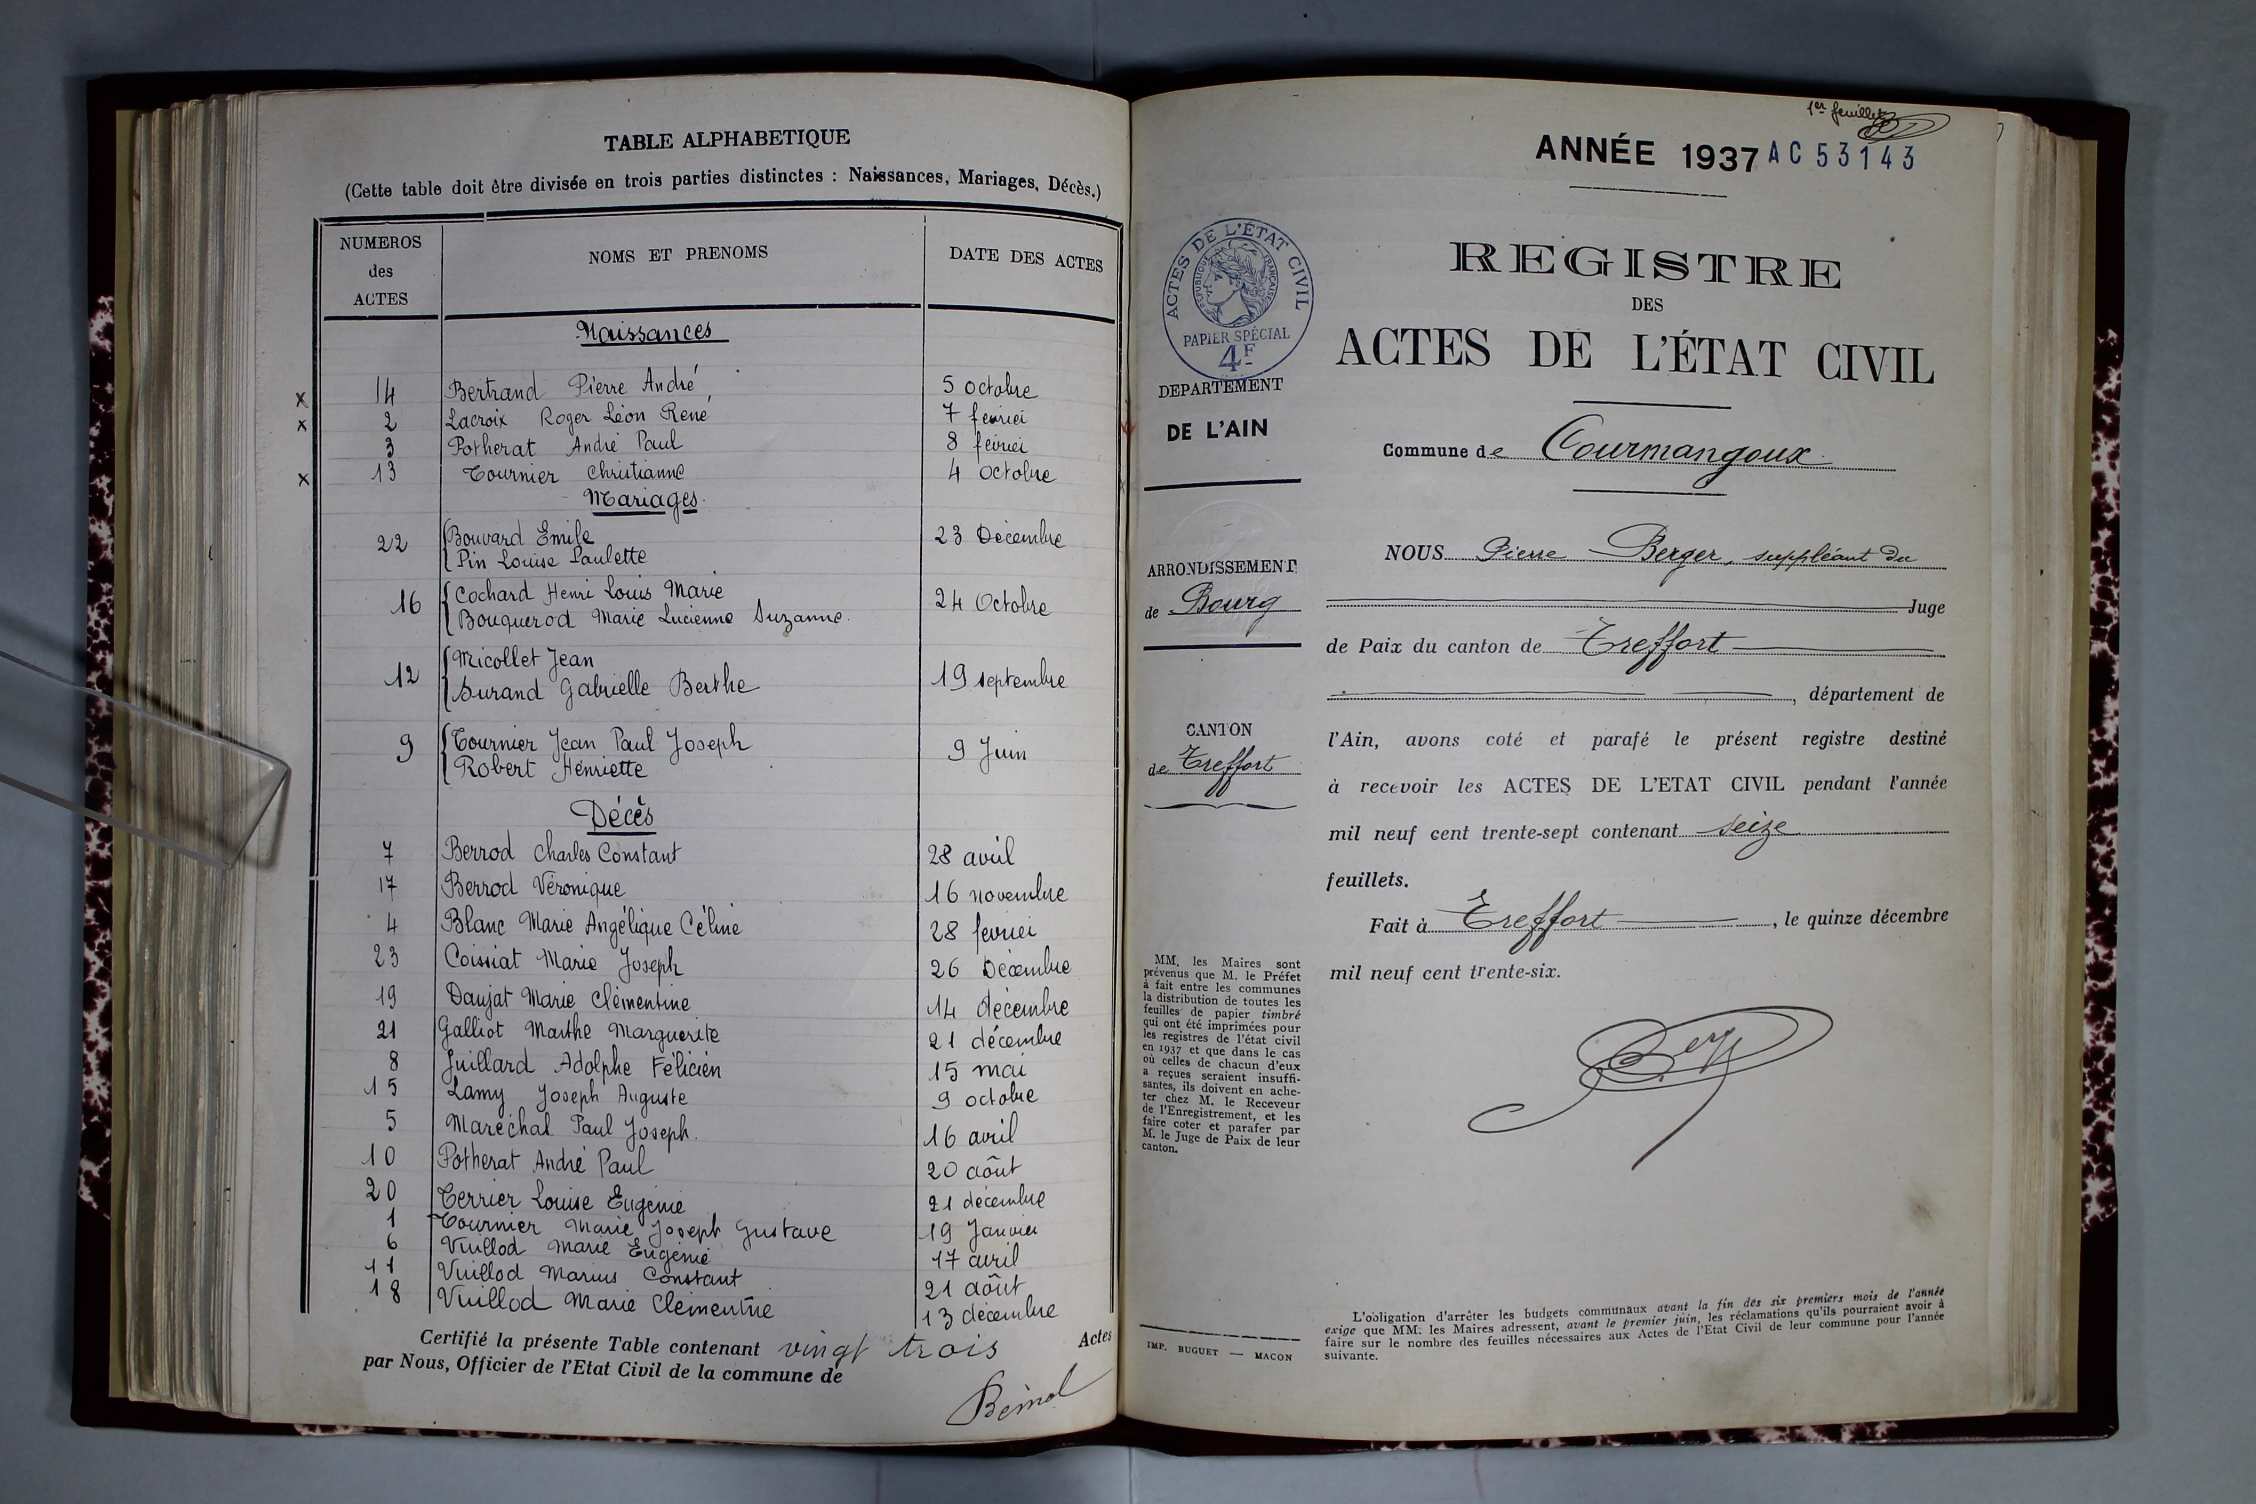 TABLE ALPHABETIQUE
(Cette table doit être divisée en trois parties distinctes : Naissances, Mariages, Décès.)
NUMEROS des ACTES NOMS ET PRENOMS DATE DES ACTES
Naissances
x 14 Bertrand Pierre André 5 octobre
x 2 Lacroix Roger Léon René 7 février
3 Potherat André Paul 8 février
x 13 Tournier Christianne 4 octobre
Mariages.
22 Bouvard Emile 23 Décembre
Pin Louise Paulette
16 Cochard Henri Louis Marie 24 Octobre
Bouquerod Marie Lucienne Suzanne.
12 Micollet Jean 19 septembre
Durand Gabrielle Berthe
9 Tournier Jean Paul Joseph 9 Juin
Robert Henriette
Décès
7 Berrod Charles Constant 28 avril
17 Berrod Véronique 16 novembre
4 Blanc Marie Angélique Céline 28 février
23 Coissiat Marie Joseph 26 Décembre
19 Daujat Marie Clémentine 14 décembre
21 Galliot Marthe Marguerite 21 décembre
8 Juillard Adolphe Félicien 15 mai
15 Lamy Joseph Auguste 9 octobre
5 Maréchal Paul Joseph. 16 avril
10 Potherat André Paul 20 août
20 Terrier Louise Eugénie 21 décembre
1 Tournier Marie Joseph Gustave 19 Janvier
6 Vuillod Marie Eugénie 17 avril
11 Vuillod Marius Constant 21 août
18 Vuillod Marie Clémentine 13 décembre
Certifié la présente Table contenant vingt trois Actes
par Nous, Officier de l'Etat Civil de la commune de
1er feuillet
ANNÉE 1937 AC 53143
ACTES DE L'ÉTAT CIVIL
REPUBLIQUE FRANÇAISE
PAPIER SPÉCIAL
4F
DEPARTEMENT
DE L'AIN
ARRONDISSEMENT
de Bourg
CANTON
de Treffort
MM. les Maires sont
prévenus que M. le Préfet
a fait entre les communes
la distribution de toutes les
feuilles de papier timbré
qui ont été imprimées pour
les registres de l'état civil
en 1937 et que dans le cas
où celles de chacun d'eux
a reçues seraient insuffi-
santes, ils doivent en ache-
ter chez M. le Receveur
de l'Enregistrement, et les
faire coter et parafer par
M. le Juge de Paix de leur
canton.
IMP. BUGUET — MACON
REGISTRE
DES
ACTES DE L'ÉTAT CIVIL
Commune de Courmangoux
NOUS Pierre Berger, suppléant du
Juge
de Paix du canton de Treffort
, département de
l'Ain, avons coté et parafé le présent registre destiné
à recevoir les ACTES DE L'ETAT CIVIL pendant l'année
mil neuf cent trente-sept contenant seize
feuillets.
Fait à Treffort, le quinze décembre
mil neuf cent trente-six.
L'obligation d'arrêter les budgets communaux avant la fin des six premiers mois de l'année
exige que MM. les Maires adressent, avant le premier juin, les réclamations qu'ils pourraient avoir à
faire sur le nombre des feuilles nécessaires aux Actes de l'Etat Civil de leur commune pour l'année
suivante.